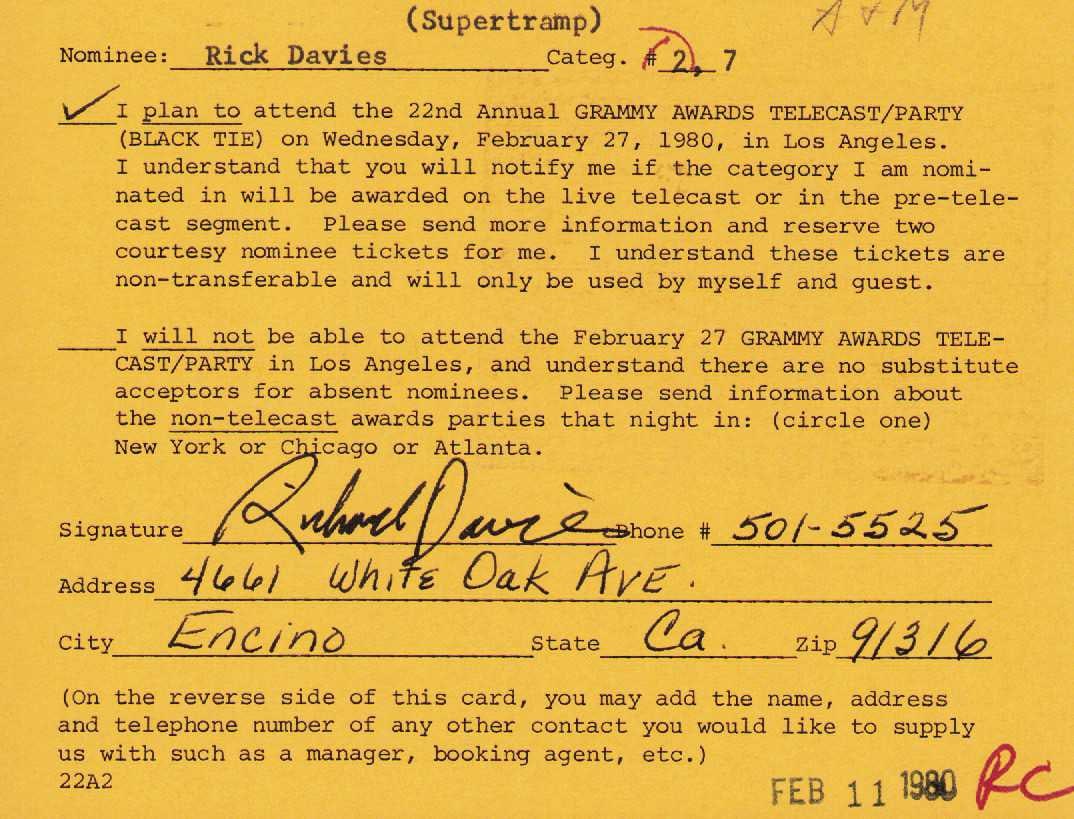 (Supertramp) A & M
Nominee: Rick Davies Categ. # 2, 7
✓ I plan to attend the 22nd Annual GRAMMY AWARDS TELECAST/PARTY
(BLACK TIE) on Wednesday, February 27, 1980, in Los Angeles.
I understand that you will notify me if the category I am nomi-
nated in will be awarded on the live telecast or in the pre-tele-
cast segment. Please send more information and reserve two
courtesy nominee tickets for me. I understand these tickets are
non-transferable and will only be used by myself and guest.
I will not be able to attend the February 27 GRAMMY AWARDS TELE-
CAST/PARTY in Los Angeles, and understand there are no substitute
acceptors for absent nominees. Please send information about
the non-telecast awards parties that night in: (circle one)
New York or Chicago or Atlanta.
Signature Richard Davies Phone # 501-5525
Address 4661 White Oak Ave.
City Encino State Ca. Zip 91316
(On the reverse side of this card, you may add the name, address
and telephone number of any other contact you would like to supply
us with such as a manager, booking agent, etc.)
22A2
FEB 11 1980 RC